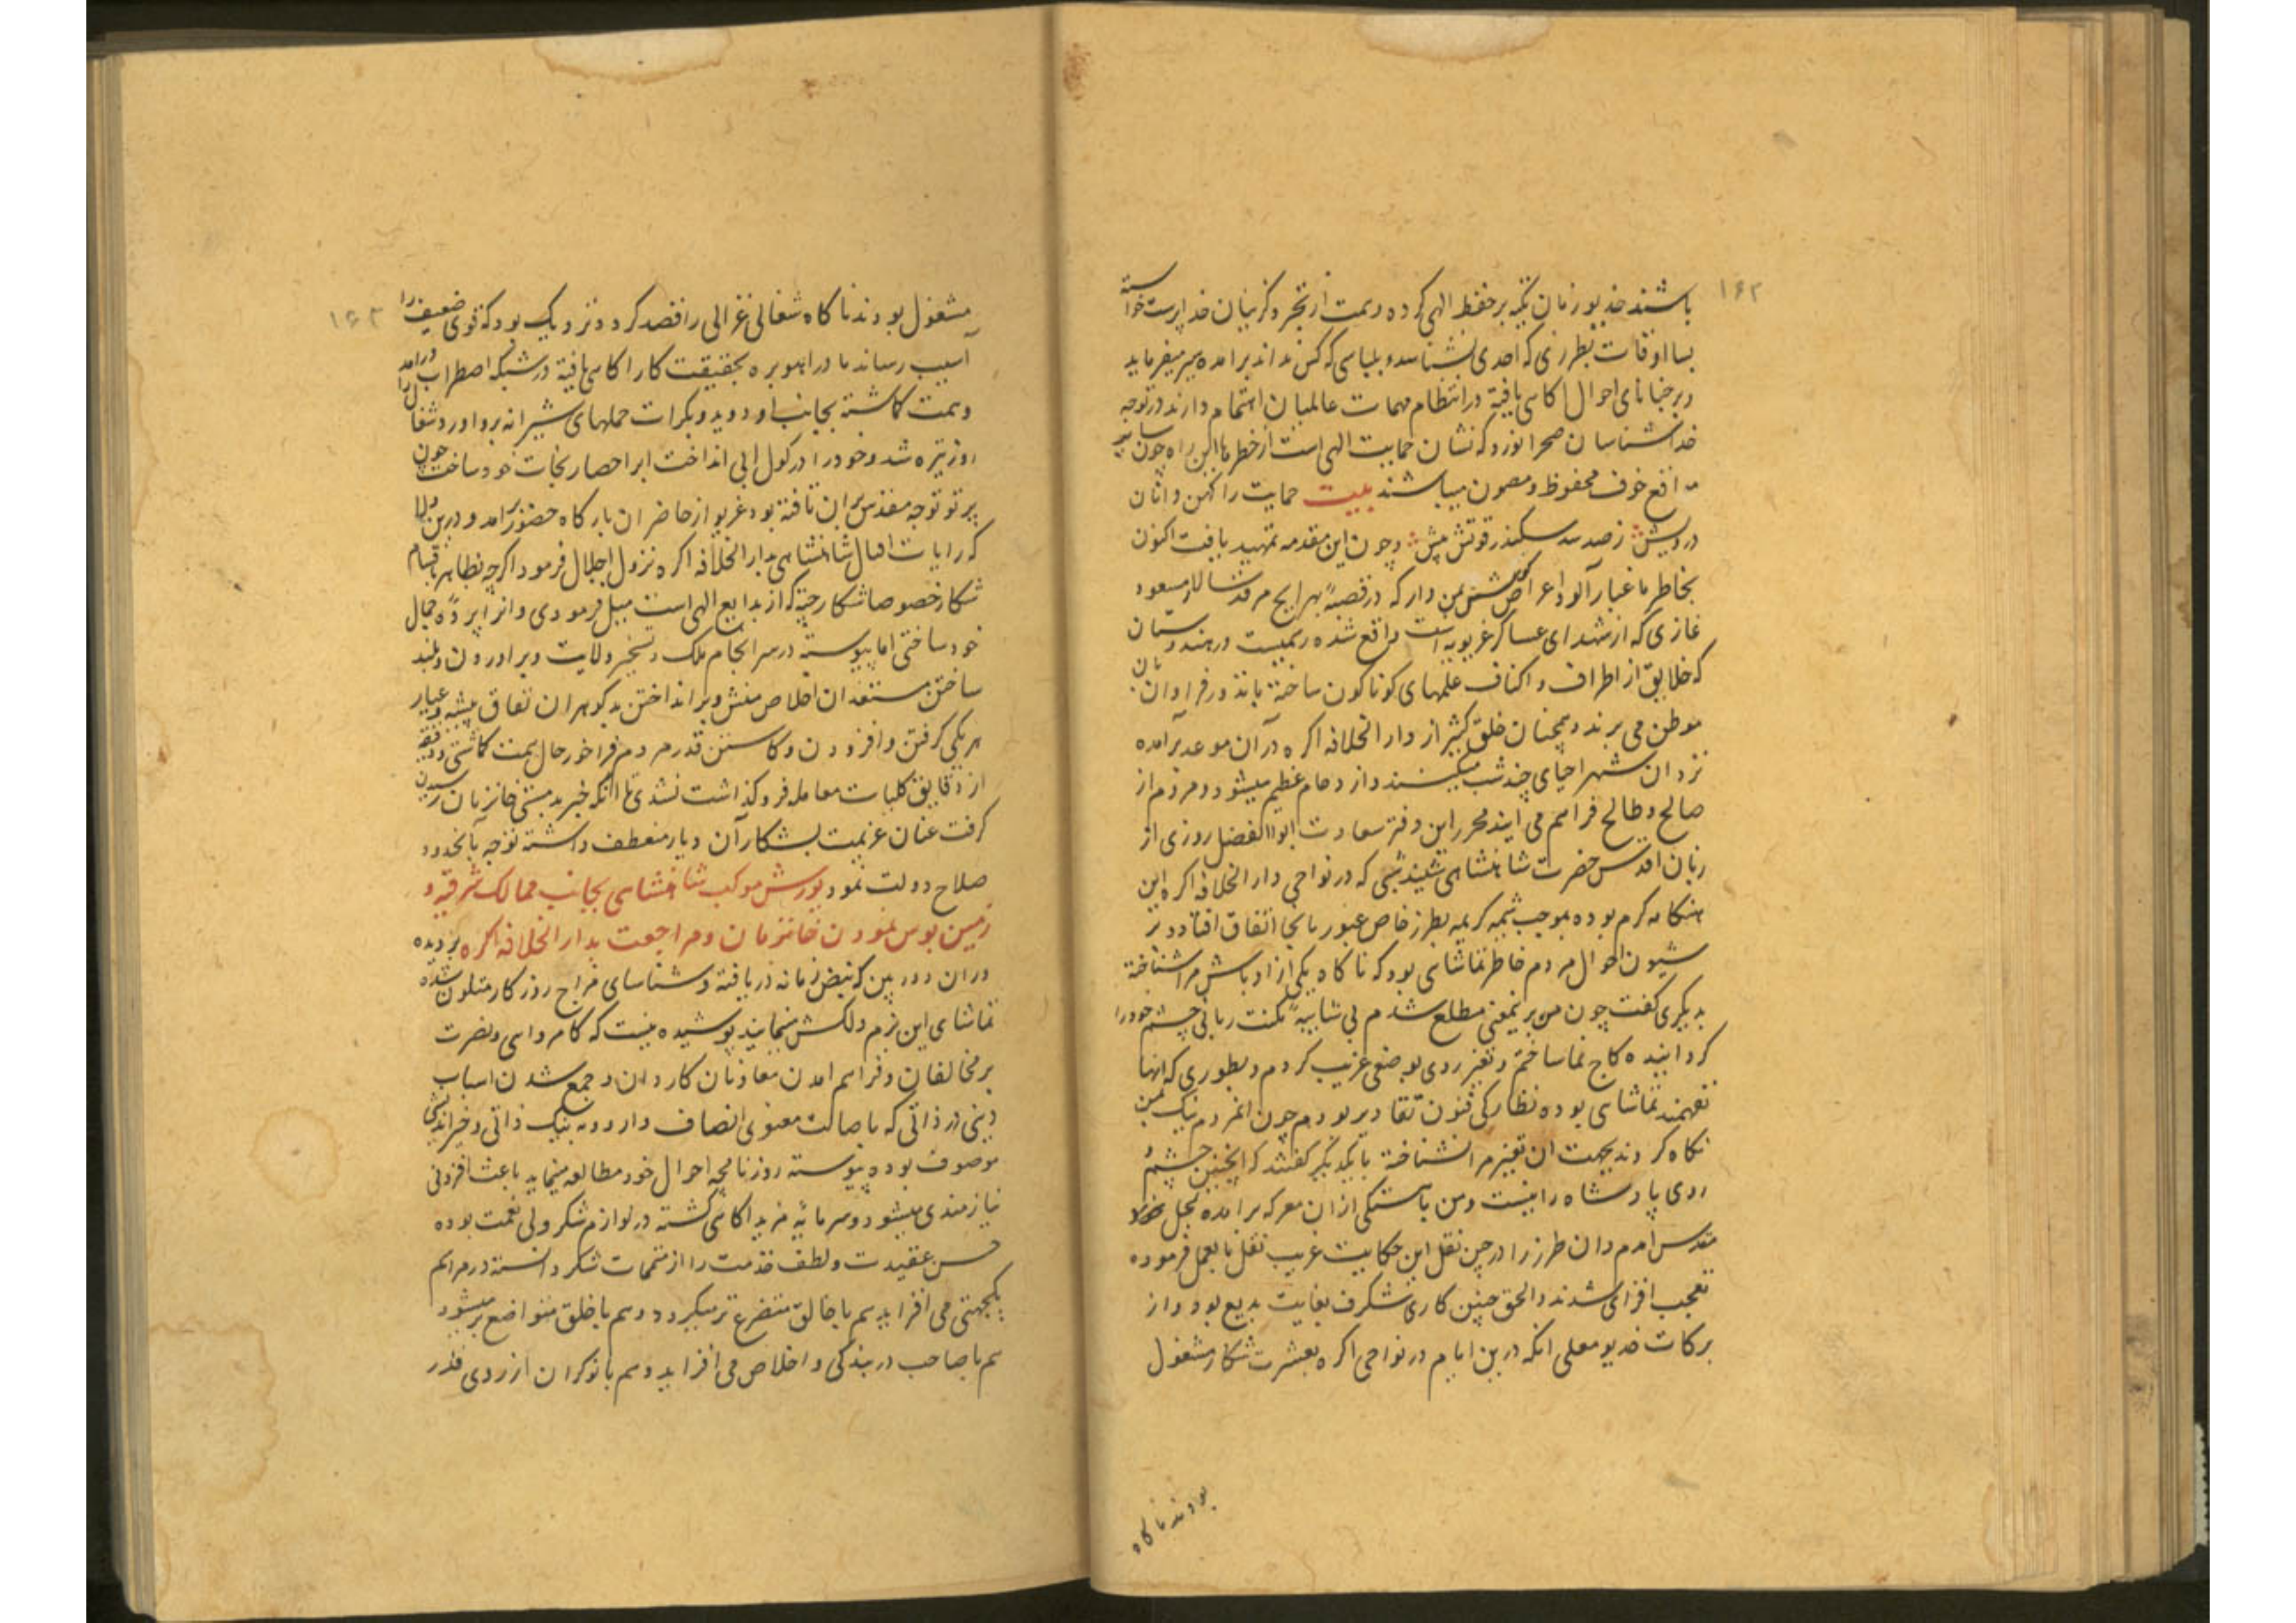 ۱۶۲
باشند خدیو زمان تکیه بر حفظ الهی کرده و همت از تجرد گزینان خداپرست خواسته
بسا اوقات بطرزی که احدی نشناسد و بلباسی که کس نداند برامده سیر میفرماید
و بر خبایای احوال اکاهی یافته در انتظام مهمات عالمیان اهتمام دارند و توجه
خداشناسان صحرا نورد که نشان حمایت الهی است از خطرهای این راه چون سایر
مواقع خوف محفوظ و مصون میباشند بیت حمایت را کهن دامان
درویش ز صد سد سکندر قوتش بیش و چون این مقدمه تمهید یافت اکنون
بخاطر ما غبار آلود اعراض گوش من دار که در قصبهٔ بهرایج مرقد سالار مسعود
غازی که از شهدای عساکر غزنویه است واقع شده رسمیست در هندوستان
که خلایق از اطراف و اکناف علمهای کوناکون ساخته با نذور فراوان بان
موطن می برند و همچنان خلق کثیر از دار الخلافه اکره در آن موعد برامده
نزد ان شهر احیای چند شب میکنند و ازدحام عظیم میشود و مردم از
صالح و طالح فراهم می ایند محرر این دفتر سعادت ابوالفضل روزی از
زبان اقدس حضرت شاهنشاهی شنید شبی که در نواحی دار الخلافه اکره این
هنکامه کرم بوده بموجب شیمه کریمه بطرز خاص عبور ما بانجا اتفاق افتاد و بر
شیون احوال مردم خاطر تماشای بود که ناکاه یکی از اوباش مرا شناخته
بدیکری کفت چون من بر نیمعنی مطلع شدم بی شایبهٔ مکنت ربانی چشم خود را
کردانیده کاج نما ساختم و تغیر روی بوضعی غریب کردم و بطوری که انها
نفهمند تماشای بوده نظارکی فنون تقادیر بودم چون انمردم نیک بمن
نکاه کردند بجهت ان تغیر مرا نشناخته با یکدیکر کفتند که اینچنین چشم و
روی پادشاه را نیست و من باهستکی از ان معرکه برامده بمحل خود
مقدس امدم و ان طرز را در حین نقل این حکایت غریب نقل بالعمل فرموده
تعجب افزای شدند و الحق چنین کاری شکرف بغایت بدیع بود و از
برکات خدیو معلی انکه درین ایام در نواحی اکره بعشرت شکار مشغول
بودند ناکاه
۱۶۳
مشغول بودند ناکاه شغالی غزالی را قصد کرد و نزدیک بود که قوی ضعیف را
آسیب رساند مادر اهوبره بحقیقت کار اکاهی یافته در شبکه اضطراب درامد
و همت کماشته بجانب او دوید و بکرات حملهای شیرانه برو اورد و شغال را
روز تیره شد و خود را در کول ابی انداخت انرا حصار نجات خود ساخت چون
پرتو توجه مقدس بران تافته بود غریو از حاضران بارکاه حضور برامد و درین ولا
که رایات اقبال شاهنشاهی بدار الخلافه اکره نزول اجلال فرمود اکرچه بظاهر باقسام
شکار خصوصا شکار چیته که از بدایع الهی است میل فرمودی و انرا پردهٔ جمال
خود ساختی اما پیوسته در سرانجام ملک و تسخیر ولایت و براوردن و بلند
ساختن مستعدان اخلاص منش و برانداختن بدکوهران نفاق پیشه و عیار
هریکی کرفتن و افزودن و کاستن قدر مردم فراخور حال همت کماشتی و دقیقه
از دقایق کلیات معامله فروکذاشت نشدی تا انکه خبر بدمستی خانزمان رسیدن
کرفت عنان عزیمت بشکار آن دیار منعطف داشته توجه بانحدود
صلاح دولت نمود یورش موکب شاهنشاهی بجانب ممالک شرقیه و
زمین بوس نمودن خانزمان و مراجعت بدار الخلافه اکره بر دیده
وران دوربین که نبض زمانه دریافته و شناسای مزاج روزکار متلون شده
تماشای این بزم دلکش مینمایند پوشیده نیست که کامروایی و نصرت
بر مخالفان و فراهم امدن معاونان کاردان و جمع شدن اسباب
دینی در ذاتی که باصالت معنوی اتصاف دارد و به نیک ذاتی و خیر اندیشی
موصوف بوده پیوسته روزنامچه احوال خود مطالعه مینماید باعث افزونی
نیازمندی میشود و سرمایه مزید اکاهی کشته در لوازم شکر ولی نعمت بوده
حسن عقیدت و لطف خدمت را از متممات شکر دانسته در مراسم
یکجهتی می افزاید هم با خالق متضرع تر میکردد و هم با خلق متواضع تر میشود
هم با صاحب در بندکی و اخلاص می افزاید و هم با نوکران از روی قدر